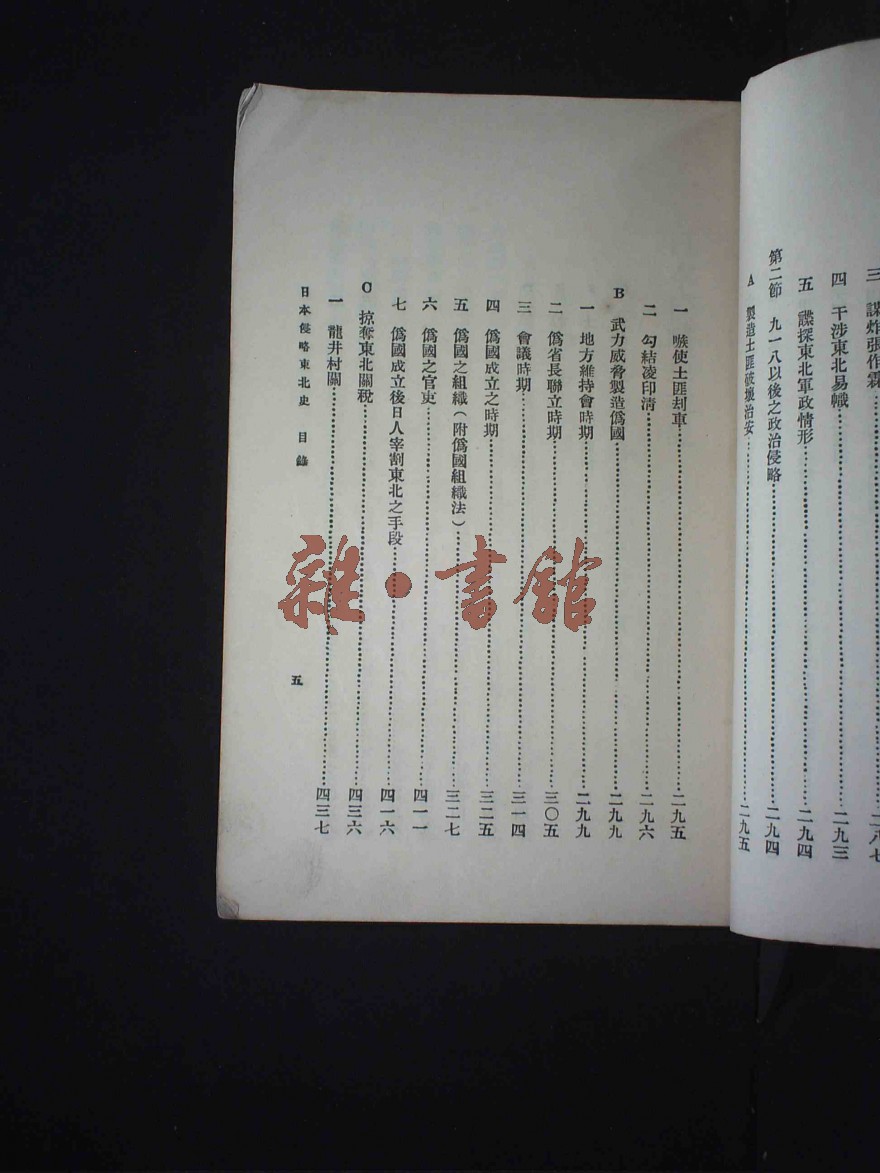 三 謀炸張作霖……二八七
四 干涉東北易幟……二九三
五 諜探東北軍政情形……二九四
第二節 九一八以後之政治侵略……二九四
A 製造土匪破壞治安……二九五
一 嗾使土匪刦車……二九五
二 勾結凌印淸……二九六
B 武力威脅製造僞國……二九九
一 地方維持會時期……二九九
二 僞省長聯立時期……三〇五
三 會議時期……三一四
四 僞國成立之時期……三二五
五 僞國之組織(附僞國組織法)……三二七
六 僞國之官吏……四一一
七 僞國成立後日人宰割東北之手段……四一六
C 掠奪東北關稅……四三六
一 龍井村關……四三七
日本侵略東北史 目錄
五
雜·書館